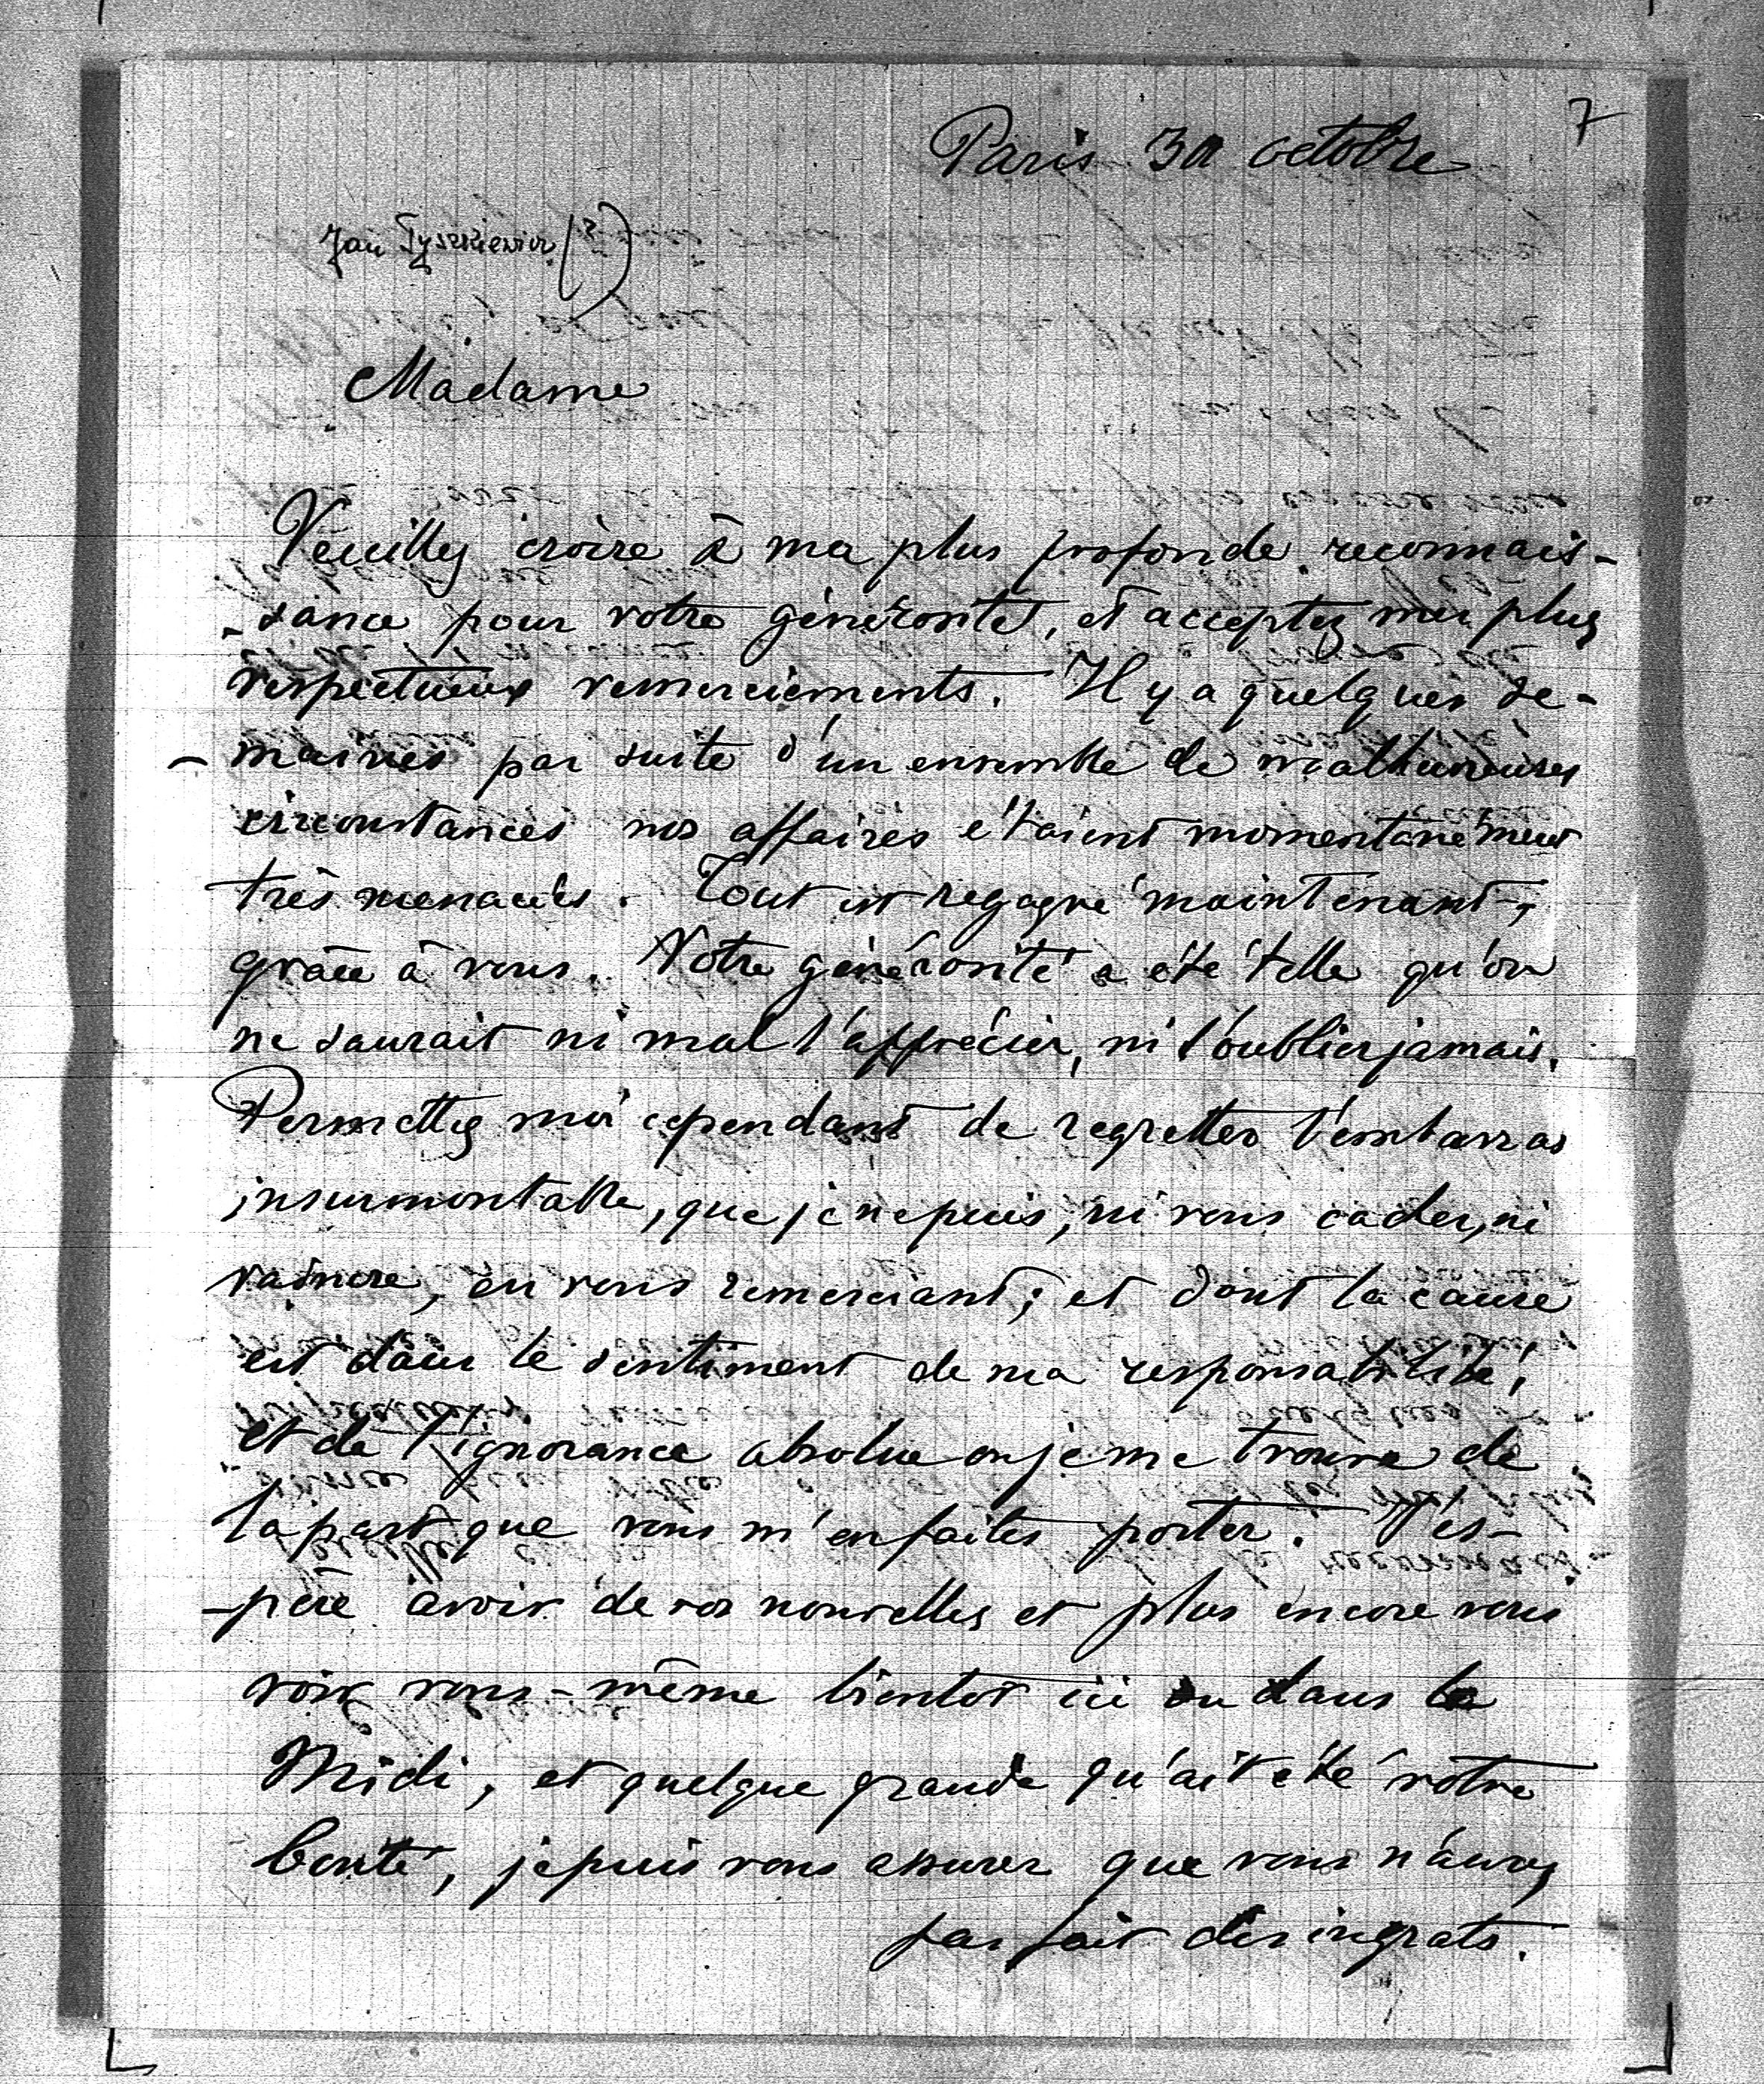 7
Paris 30 octobre
Jan Tyszkiewicz (?)
Madame
Veuillez croire à ma plus profonde reconnais-
-sance pour votre générosité, et acceptez mes plus
respectueux remerciements. Il y a quelques se-
-maines par suite d'un ensemble de malheureuses
circonstances nos affaires étaient momentanément
très menacées. Tout est regagné maintenant,
grâce à vous. Votre générosité a été telle qu'on
ne saurait ni mal l'apprécier, ni l'oublier jamais.
Permettez moi cependant de regretter l'embarras
insurmontable, que je ne puis, ni vous cacher, ni
vaincre, en vous remerciant; et dont la cause
est dans le sentiment de ma responsabilité,
et de l'ignorance absolue où je me trouve de
la part que vous m'en faites porter. J'es-
-père avoir de vos nouvelles et plus encore vous
voir vous-même bientot ici ou dans le
Midi, et quelque grande qu'ait été votre
bonté, je puis vous assurer que vous n'aurez
pas fait des ingrats.